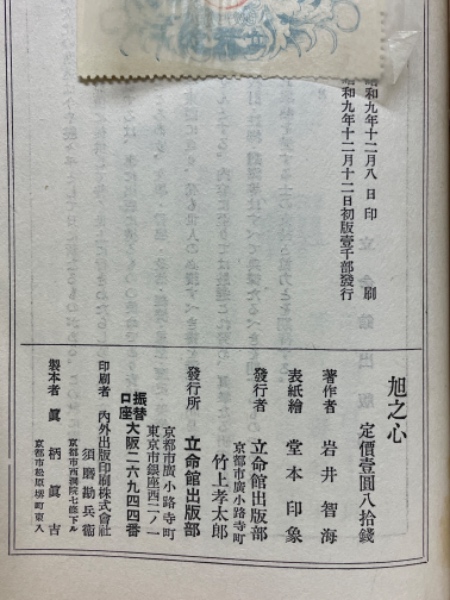 昭和九年十二月八日印刷
昭和九年十二月十二日初版壹千部發行
旭之心
定價壹圓八拾錢
著作者 岩井智海
表紙繪 堂本印象
京都市廣小路寺町
發行者 立命館出版部
竹上孝太郎
京都市廣小路寺町
發行所 立命館出版部
東京市銀座西二ノ一
振替口座 大阪二六九四四番
印刷者 內外出版印刷株式會社
須磨勘兵衞
京都市西洞院七條下ル
製本者 眞柄眞吉
京都市松原堺町東入